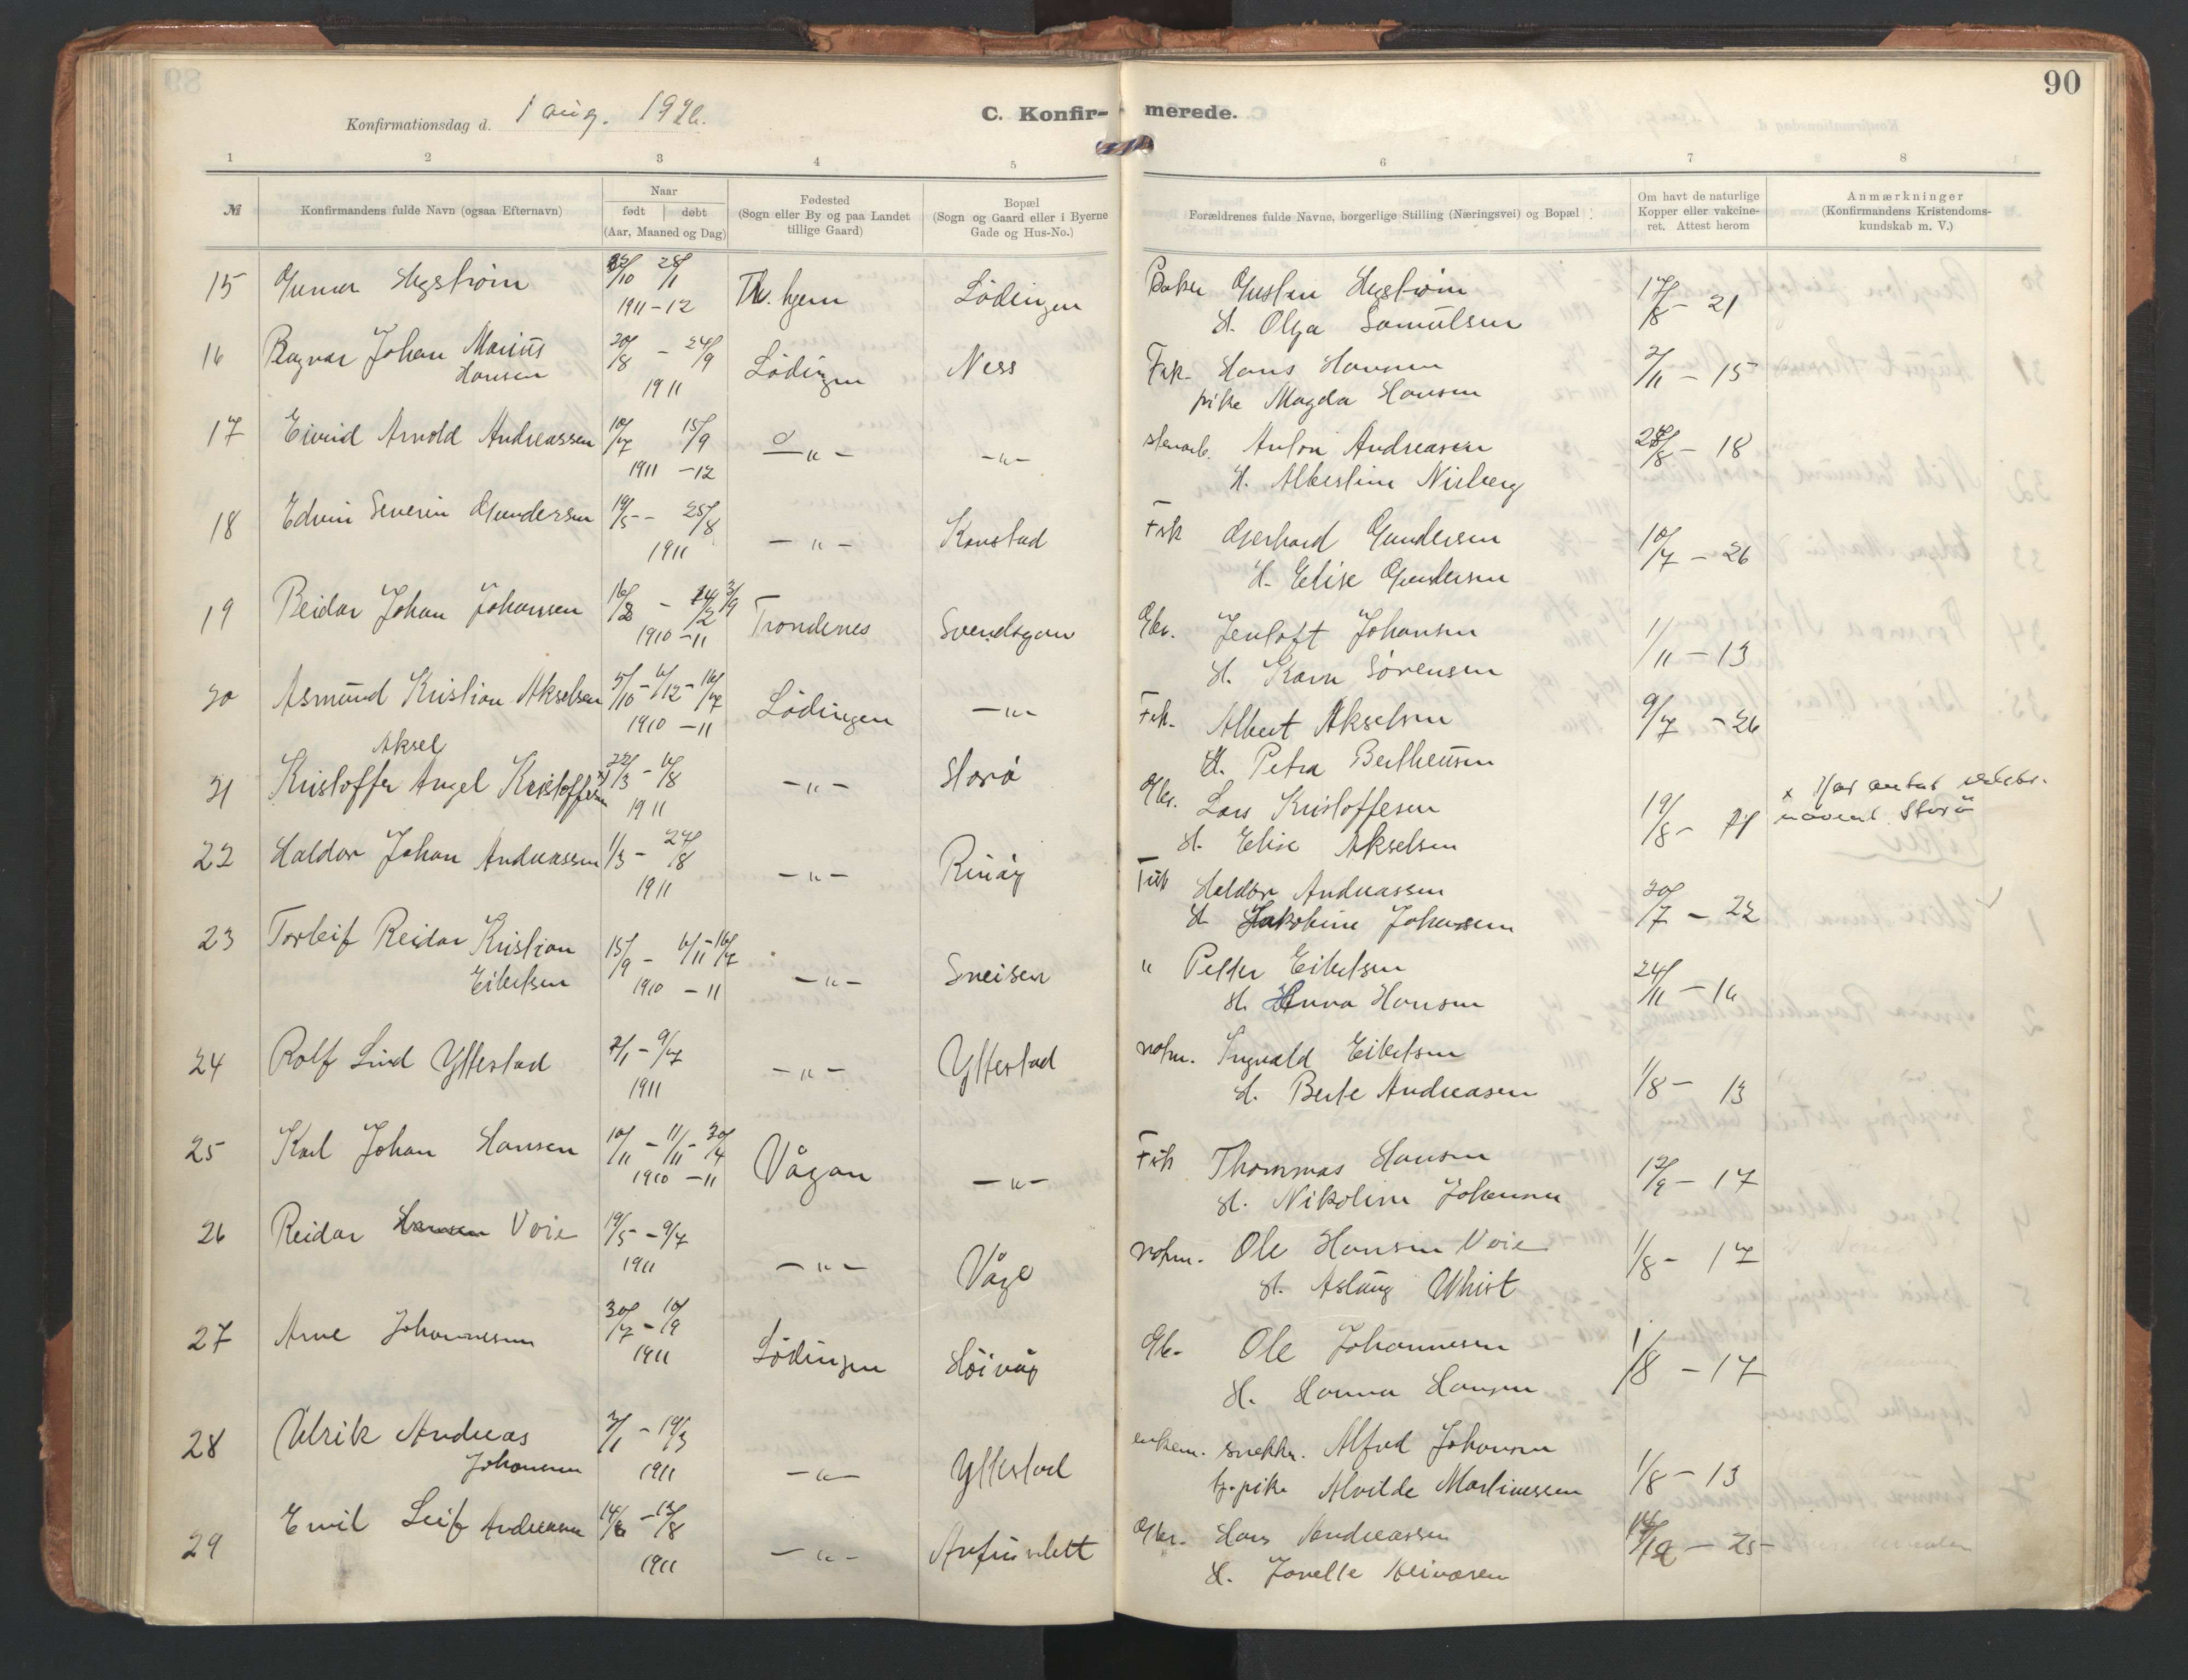 90
Konfirmationsdag d. 1 aug. 1926.
C. Konfir- merede.
1 2 3 4 5 6 7 8
№
Konfirmandens fulde Navn (ogsaa Efternavn)
Naar
født døbt
(Aar, Maaned og Dag)
Fødested
(Sogn eller By og paa Landet
tillige Gaard)
Bopæl
(Sogn og Gaard eller i Byerne
Gade og Hus-No.)
Forældrenes fulde Navne, borgerlige Stilling (Næringsvei) og Bopæl
Om havt de naturlige
Kopper eller vakcine-
ret. Attest herom
Anmærkninger
(Konfirmandens Kristendoms-
kundskab m. V.)
15 Gunnar Hegstrøm 28/1 Th.hjem Lødingen Baker Gustav Hegstrøm 17/8 - 21
1911-12 H. Olga Samulsen
16 Ragnar Johan Marius 20/8 - 24/9 Lødingen Ness Fisk. Hans Hansen 2/11 - 15
Hansen 1911 pike Magda Hansen
17 Eivind Arnold Andreassen 10/7 15/9 -"- -"- stenarb. Anton Andreasen 28/8 - 18
1911 - 12 H. Albertine Nirberg
18 Edvin Severin Gundersen 19/5 - 25/8 -"- Kanstad Fisk Gerhard Gundersen 10/7 - 26
1911 H. Elise Gundersen
19 Reidar Johan Johansen 16/8 - 3/9 Trondenes Svendsgam Gbr. Jenloft Johansen 1/11 - 13
1910 - 11 H. Karn Sørensen
20 Asmund Kristian Akselsen 5/10 - 6/12 - 16/7 Lødingen -"- Fisk. Albert Akselsen 9/7 - 26
1910 - 11 H. Petra Bertheusen
Aksel
21 Kristoffer Angel Kristoffersen x) 22/3 - 6/8 -"- Storø Gbr. Lars Kristoffersen 19/8 - 21 x Har antat
1911 H. Elise Akselsen navnet Storø
22 Haldor Johan Andreassen 1/3 - 27/8 -"- Rinøy Fisk Haldor Andreassen 20/7 - 22
1911 H Jakobine Johansen
23 Torleif Reidar Kristian 15/9 - 6/11 - 16/7 -"- Sneisen " Petter Eibertsen 24/11 - 16
Eibertsen 1910 - 11 H. Anna Hansen
24 Rolf Lind Yttestad 2/1 - 9/7 -"- Yttestad nofm. Ingvald Eibertsen 1/8 - 13
1911 H. Berte Andreasen
25 Karl Johan Hansen 10/11 - 11/11 - 20/4 Vågan -"- Fisk Thommas Hansen 12/9 - 17
1910 - 11 H. Nikoline Johansen
26 Reidar Hansen Voie 19/5 - 9/7 -"- Våge nofm. Ole Hansen Voie 1/8 - 17
1911 H. Aslaug Whist
27 Arne Johannesen 30/7 - 10/9 Lødingen Høivåg Gbr. Ole Johannesen 1/8 - 17
1911 H. Hanna Hansen
28 Ulrik Andreas 3/1 - 19/3 -"- Yttestad enkem. snekker. Alfred Johansen 1/8 - 13
Johansen 1911 tj.pike Alvilde Martinessen
29 Emil Leif Andreasen 14/6 - 13/8 -"- Gbr. Hans Andreassen 16/12 - 25
1911 H. Jonette